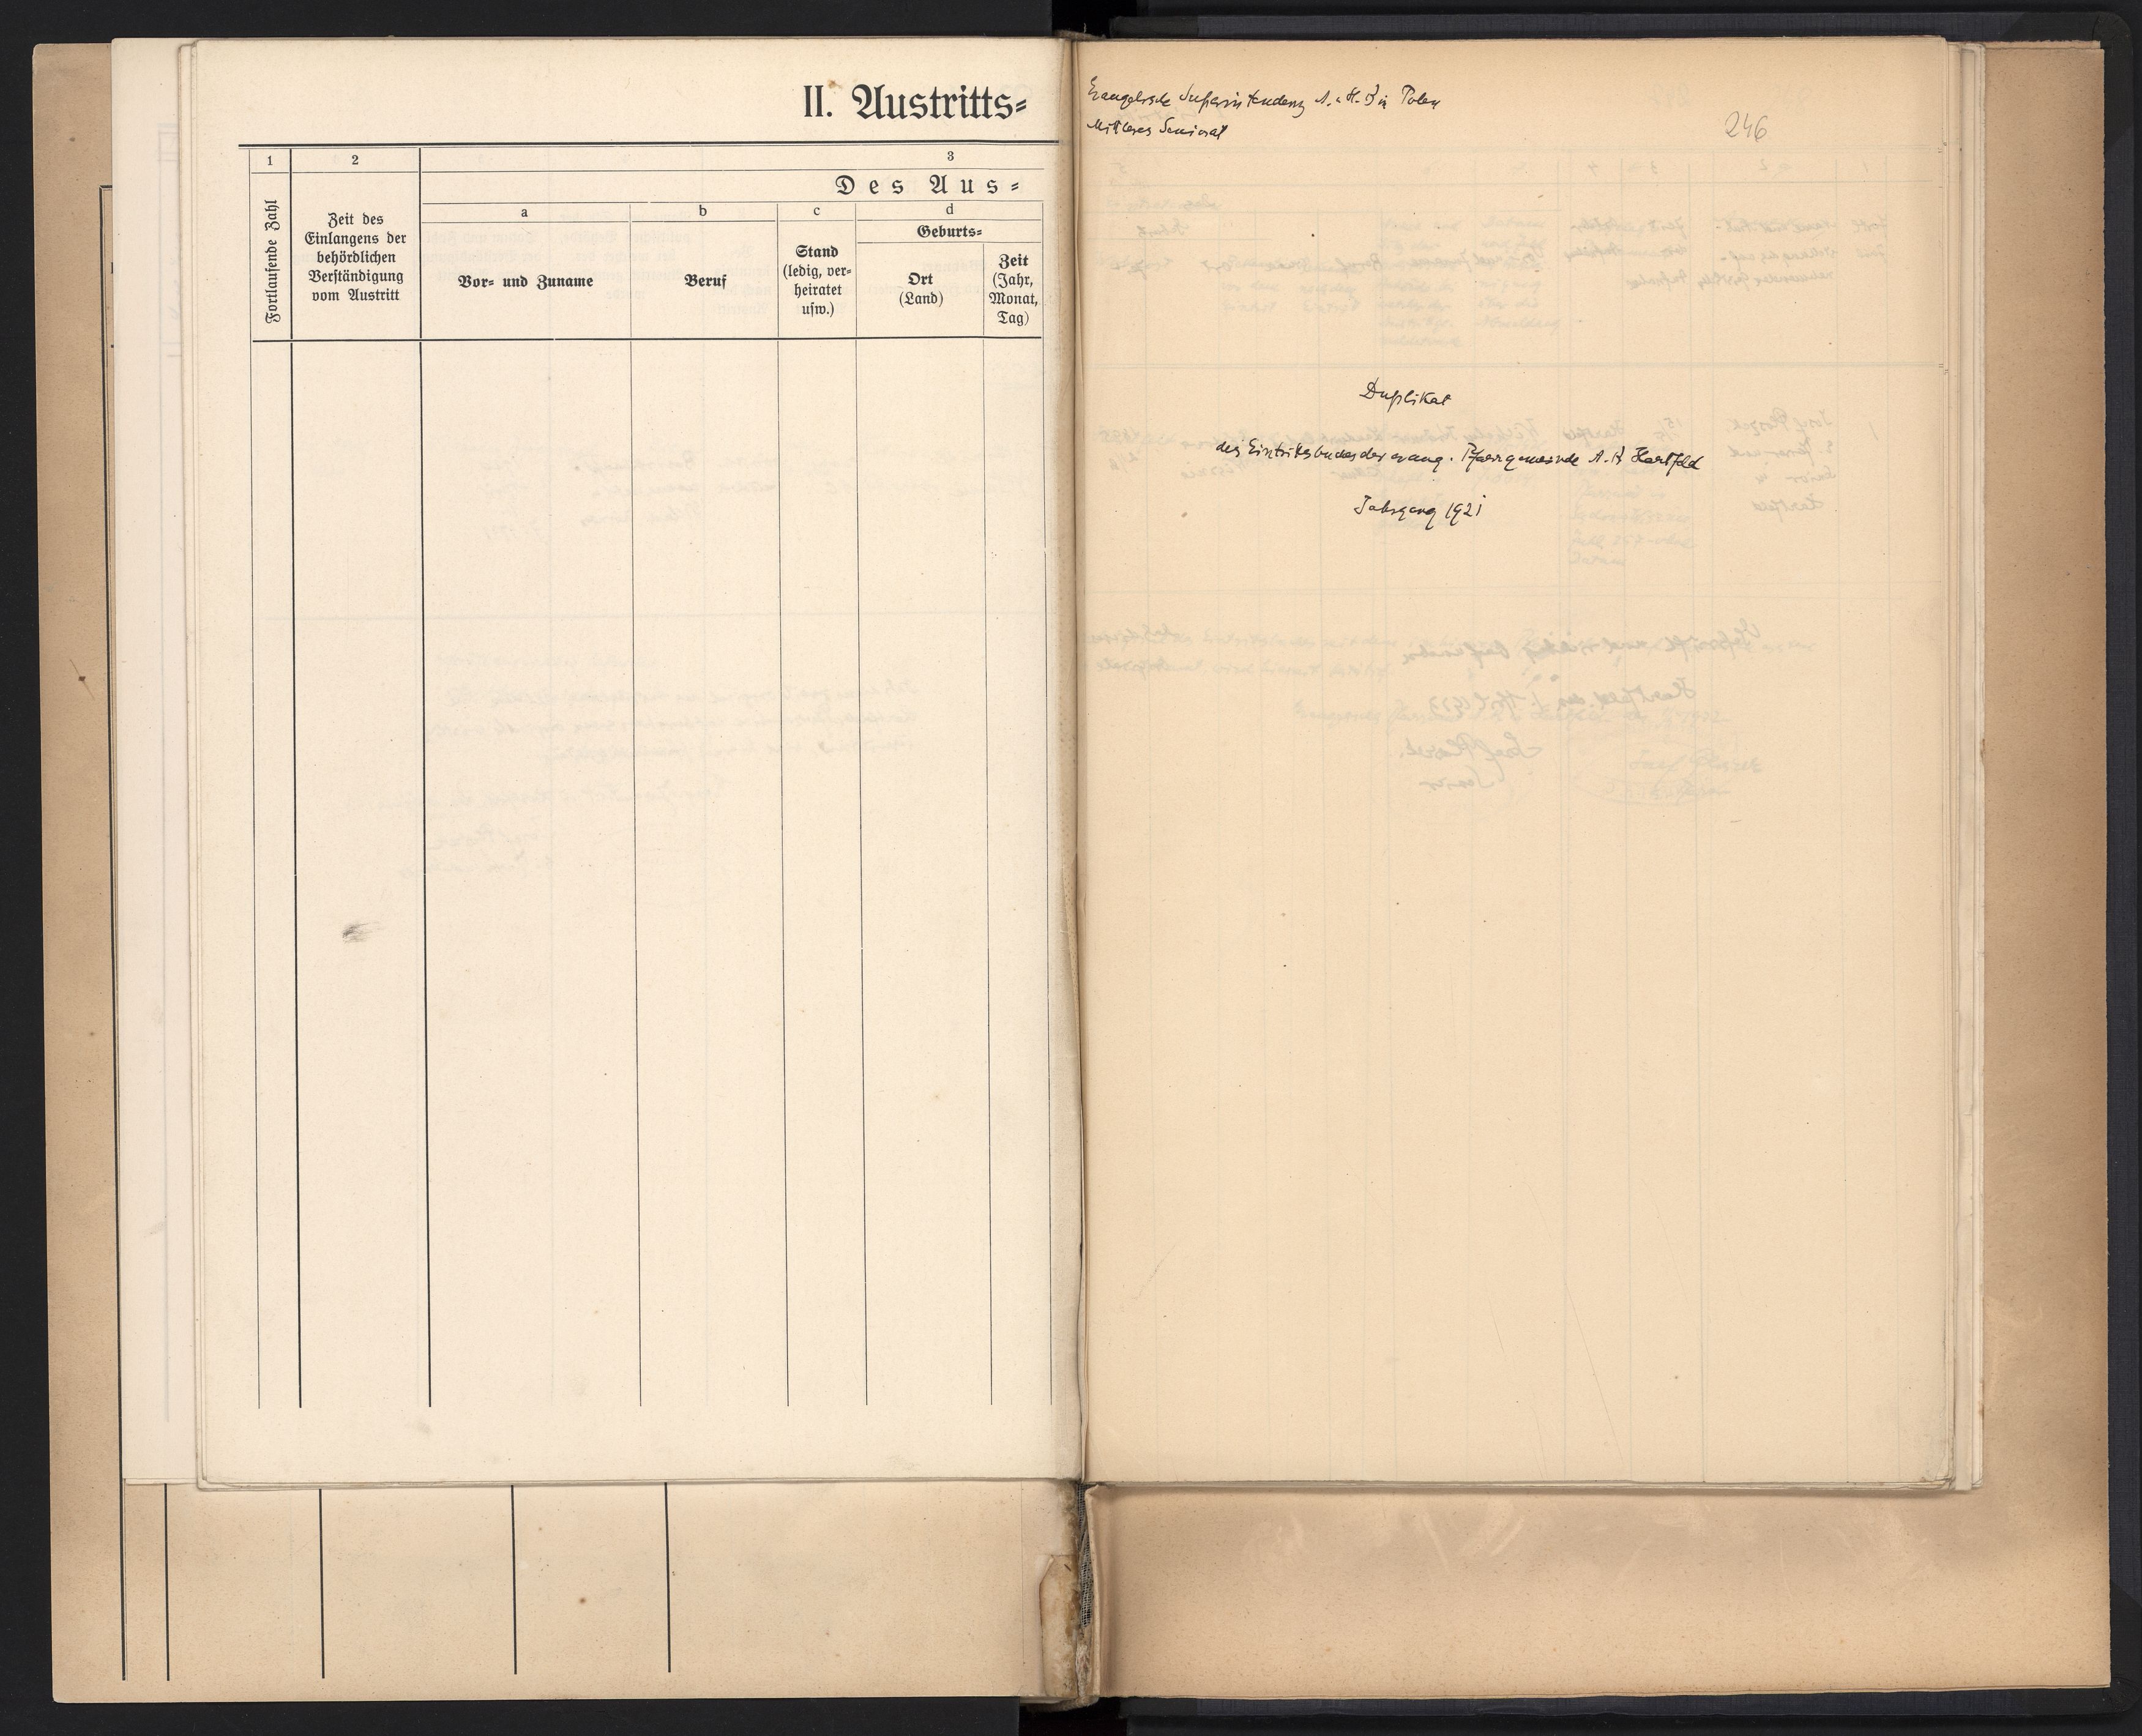 II. Austritts-
1
2
3
Des Aus-
a
b
c
d
Geburts-
Fortlaufende Zahl
Zeit des
Einlangens der
behördlichen
Verständigung
vom Austritt
Vor- und Zuname
Beruf
Stand
(ledig, ver-
heiratet
usw.)
Ort
(Land)
Zeit
(Jahr,
Monat,
Tag)
Evangelische Superintendenz A. u. H. B in Polen
Mittleres Seniorat
246
Duplikat
des Eintrittsbuches der evang. Pfarrgemeinde A. B Hartfeld
Jahrgang 1921